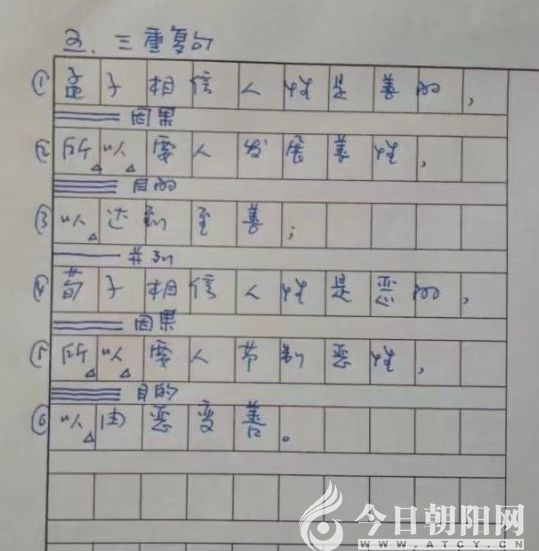 三重复句
① 孟子相信人性是善的，
因果
② 所以要人发展善性，
目的
③ 以达到至善；
并列
④ 荀子相信人性是恶的，
因果
⑤ 所以要人节制恶性，
目的
⑥ 以由恶变善。
今日朝阳网
WWW.ATCY.CN